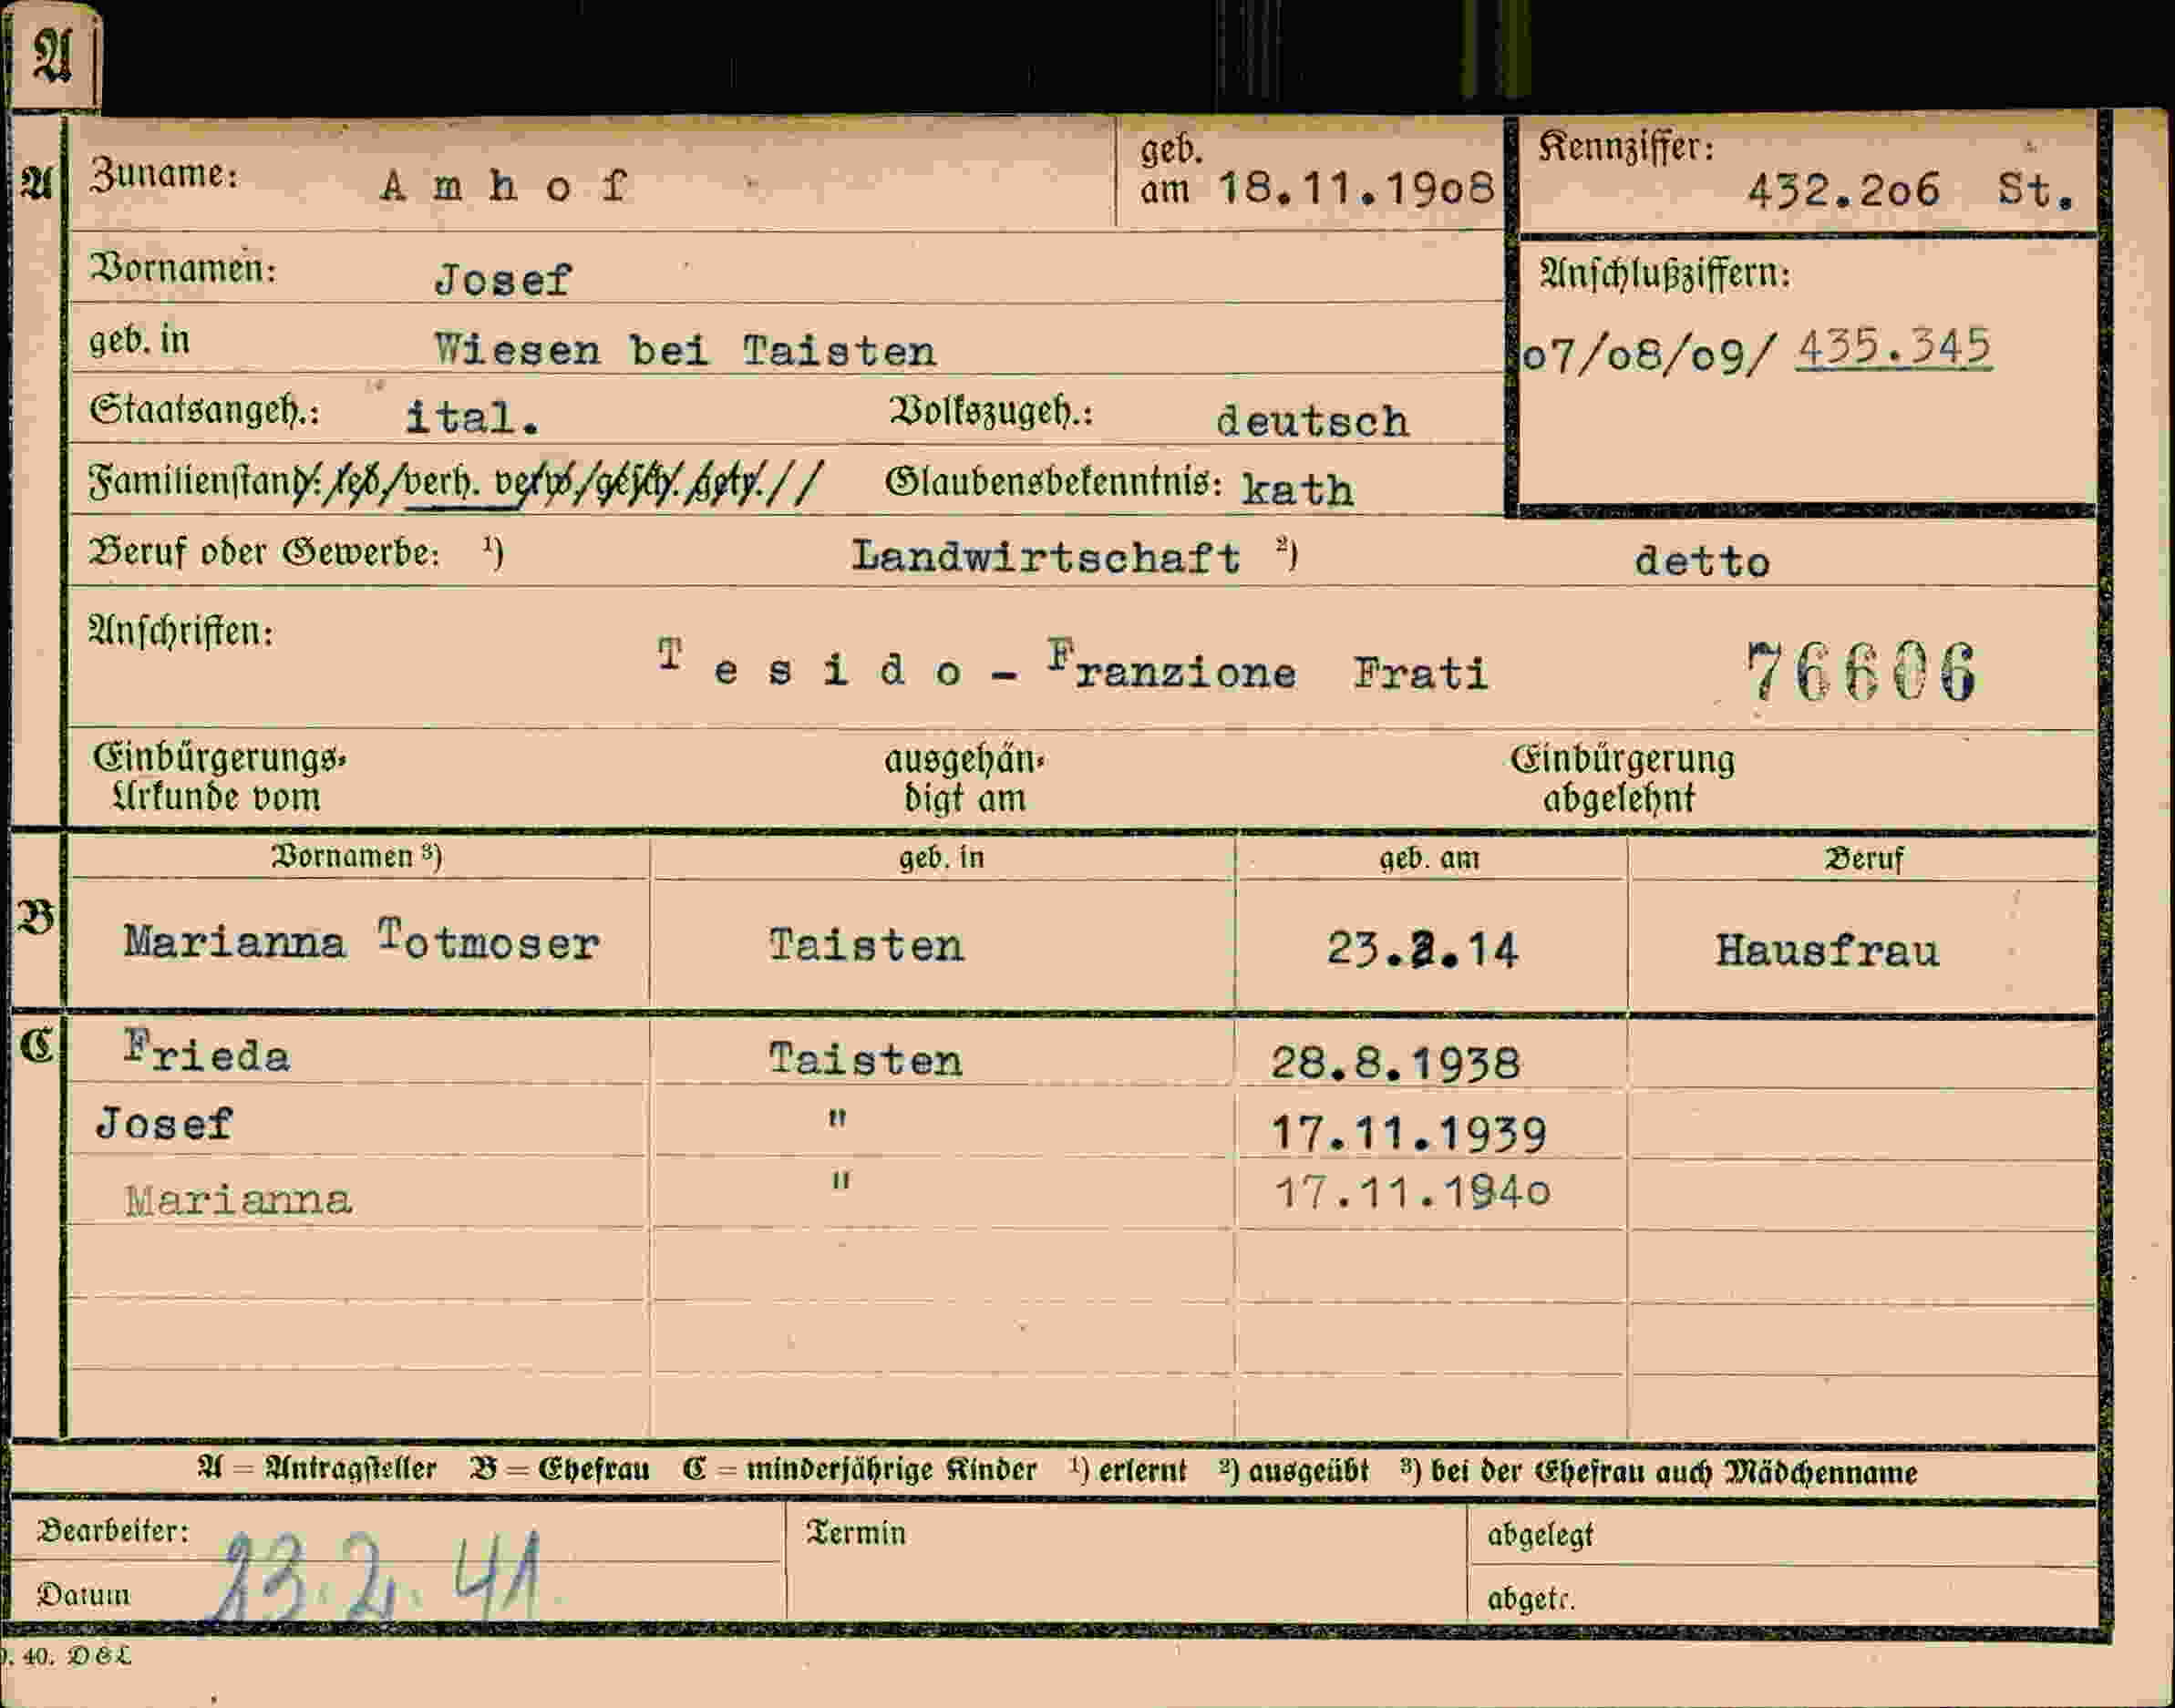 A
A
Zuname: Amhof geb. am 18.11.1908
Kennziffer: 432.206 St.
Vornamen: Josef
Anschlußziffern:
07/08/09/ 435.345
geb. in Wiesen bei Taisten
Staatsangeh.: ital. Volkszugeh.: deutsch
Familienstand: led. verh. verw. gesch. getr. Glaubensbekenntnis: kath
Beruf oder Gewerbe: ¹) Landwirtschaft ²) detto
Anschriften: Tesido - Franzione Frati 76606
Einbürgerungs- Urkunde vom ausgehän- digt am Einbürgerung abgelehnt
Vornamen ³) geb. in geb. am Beruf
B Marianna Totmoser Taisten 23. .14 Hausfrau
C Frieda Taisten 28.8.1938
Josef " 17.11.1939
Marianna " 17.11.1940
A = Antragsteller B = Ehefrau C = minderjährige Kinder ¹) erlernt ²) ausgeübt ³) bei der Ehefrau auch Mädchenname
Bearbeiter: Termin abgelegt
Datum 23.2.41 abgetr.
. 40. DEL